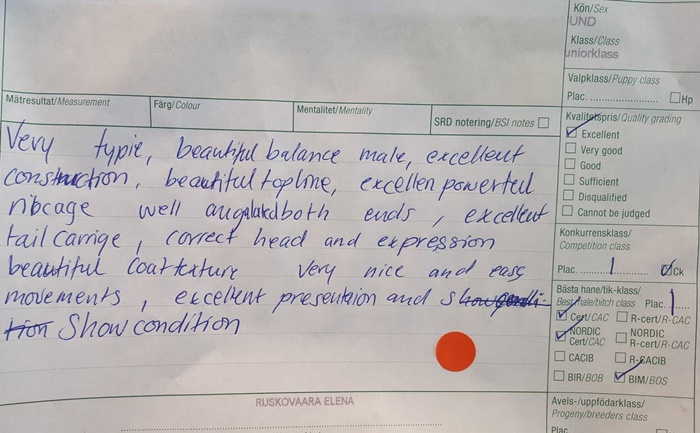 Kön/Sex
UND
Klass/Class
uniorklass
Valpklass/Puppy class
Plac. .................... Hp
Mätresultat/Measurement
Färg/Colour
Mentalitet/Mentality
SRD notering/BSI notes
Kvalitetspris/Quality grading
Excellent
Very good
Good
Sufficient
Disqualified
Cannot be judged
Very typie, beautiful balance male, excellent
construction, beautiful topline, excellen powerful
ribcage well angalated both ends, excellent
tail carrige, correct head and expression
beautiful coat texture very nice and easy
movements, excellent presenteion and
Show condition
Konkurrensklass/
Competition class
Plac. ....1.... Ck
Bästa hane/tik-klass/
Best male/bitch class Plac. 1
Cert/CAC R-cert/R-CAC
NORDIC Cert/CAC NORDIC R-cert/R-CAC
CACIB R-CACIB
BIR/BOB BIM/BOS
RUSKOVAARA ELENA
Avels-/uppfödarklass/
Progeny/breeders class
Plac